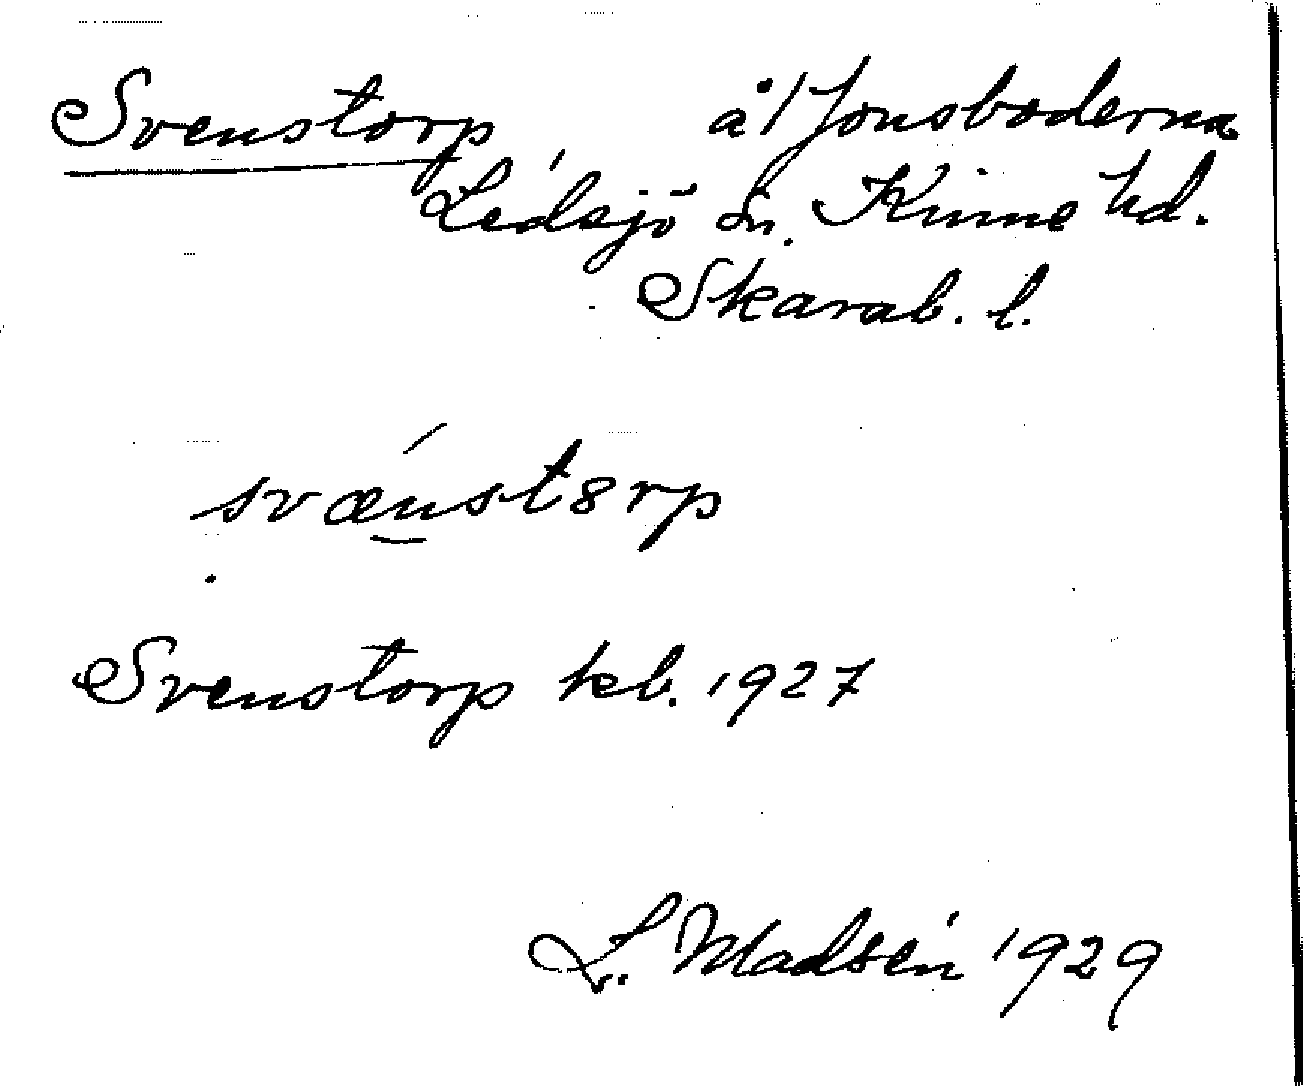 Svenstorp å/Jonsboderna
Ledsjö sn. Kinne hd.
Skarab. l.
svænst8rp
Svenstorp kb. 1927
L. Madsén 1929